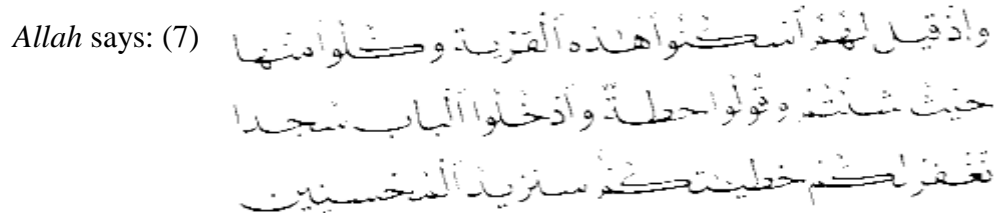 Allah says: (7) وَإِذْ قِيلَ لَهُمُ ٱسْكُنُوا۟ هَٰذِهِ ٱلْقَرْيَةَ وَكُلُوا۟ مِنْهَا
حَيْثُ شِئْتُمْ وَقُولُوا۟ حِطَّةٌ وَٱدْخُلُوا۟ ٱلْبَابَ سُجَّدًا
نَّغْفِرْ لَكُمْ خَطِيـَٰٔتِكُمْ سَنَزِيدُ ٱلْمُحْسِنِينَ